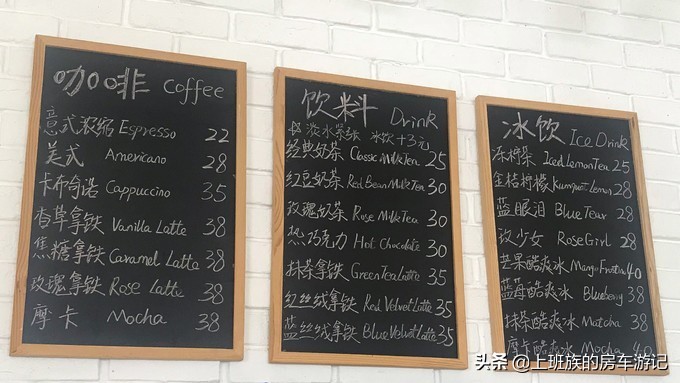 咖啡 Coffee
意式浓缩 Espresso 22
美式 Americano 28
卡布奇诺 Cappuccino 35
香草拿铁 Vanilla Latte 38
焦糖拿铁 Caramel Latte 38
玫瑰拿铁 Rose Latte 38
摩卡 Mocha 38
饮料 Drink
冰饮+3元
经典奶茶 Classic Milk Tea 25
红豆奶茶 Red Bean Milk Tea 30
玫瑰奶茶 Rose Milk Tea 30
热巧克力 Hot Chocolate 30
抹茶拿铁 Green Tea Latte 35
红丝绒拿铁 Red Velvet Latte 35
蓝丝绒拿铁 Blue Velvet Latte 35
冰饮 Ice Drink
冻柠茶 Iced Lemon Tea 25
金桔柠檬 Kumquat Lemon 28
蓝眼泪 Blue Tear 28
玫少女 Rose Girl 28
芒果酷爽冰 Mango 40
蓝莓酷爽冰 Blueberry 38
抹茶酷爽冰 Matcha 38
摩卡酷爽冰 Mocha 40
头条 @上班族的房车游记